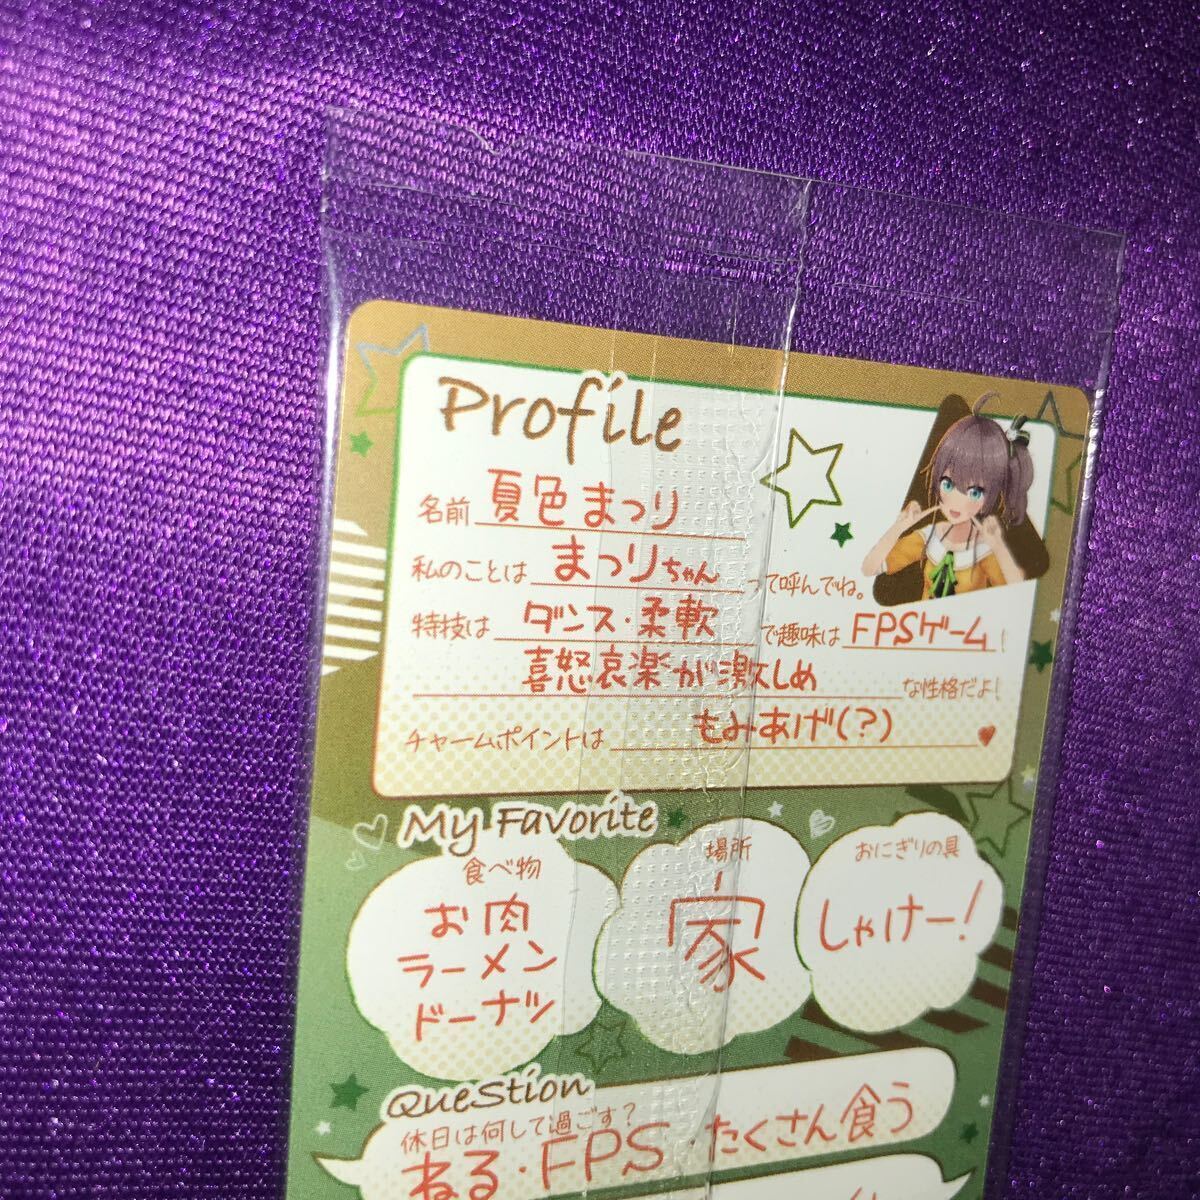 Profile
名前 夏色まつり
私のことは まつりちゃん って呼んでね。
特技は ダンス・柔軟 で趣味は FPSゲーム！
喜怒哀楽が激しめ な性格だよ！
チャームポイントは もみあげ(?)
My Favorite
食べ物
お肉
ラーメン
ドーナツ
場所
家
おにぎりの具
しゃけー！
Question
休日は何して過ごす？
ねる・FPS・たくさん食う